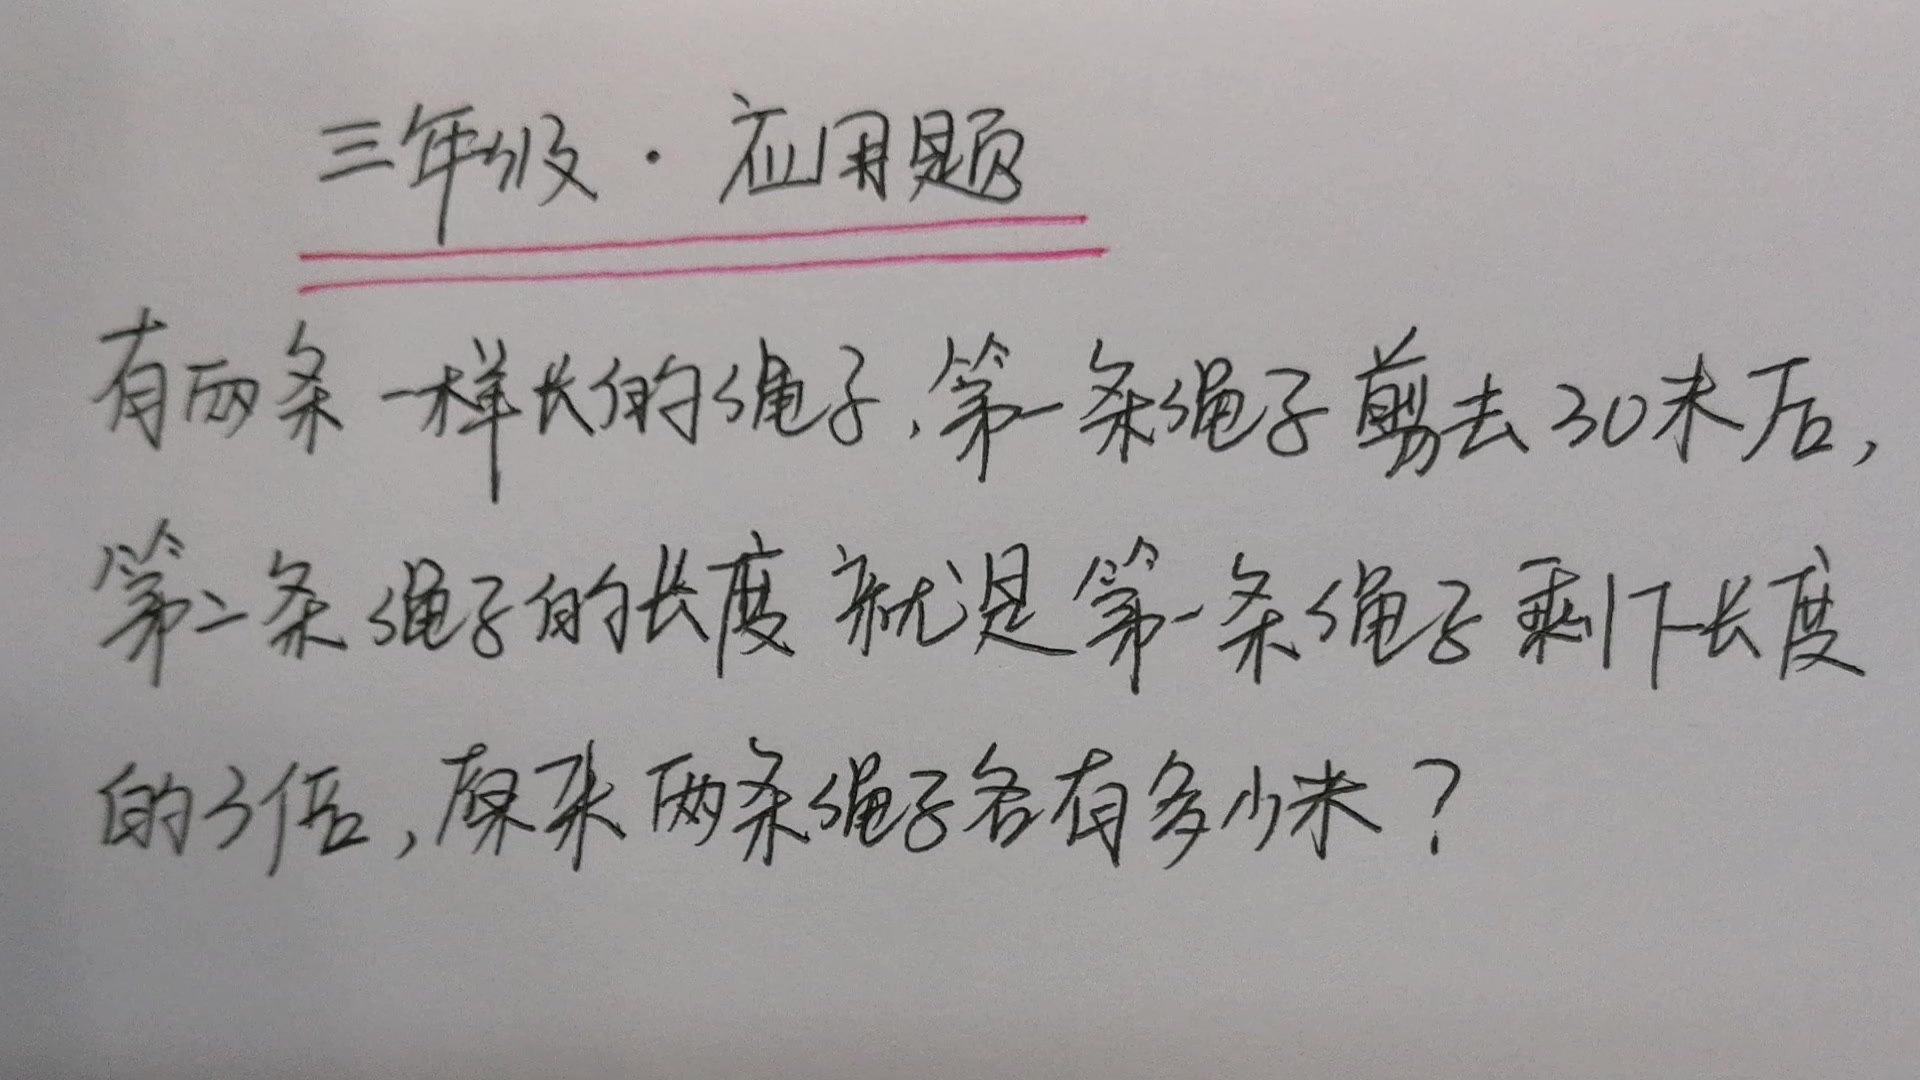 三年级·应用题
有两条一样长的绳子,第一条绳子剪去30米后,
第二条绳子的长度就是第一条绳子剩下长度
的3倍,原来两条绳子各有多少米?